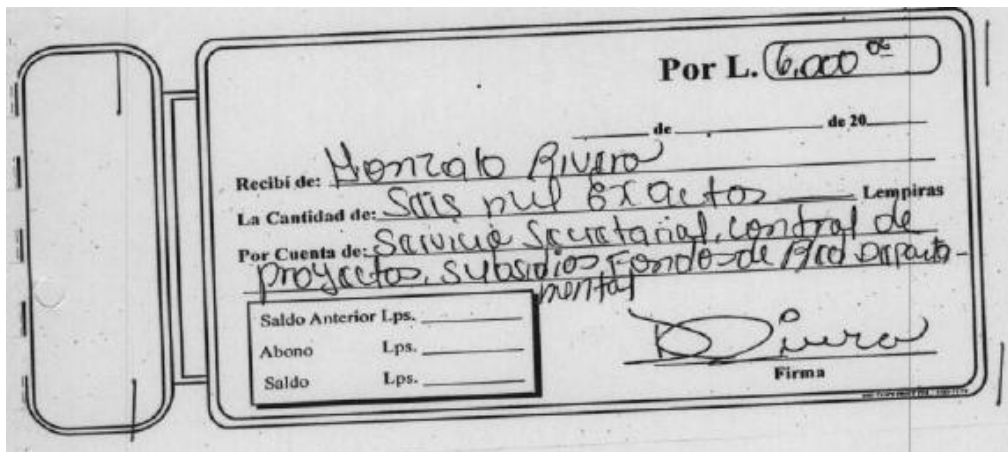 Por L. 6,000 00
de de 20
Recibí de: Gonzalo Rivera
La Cantidad de: Seis mil exactos Lempiras
Por Cuenta de: Servicio Secretarial, control de
proyectos, subsidios Fondos de Departa-
mental
Saldo Anterior Lps.
Abono Lps.
Saldo Lps.
Firma